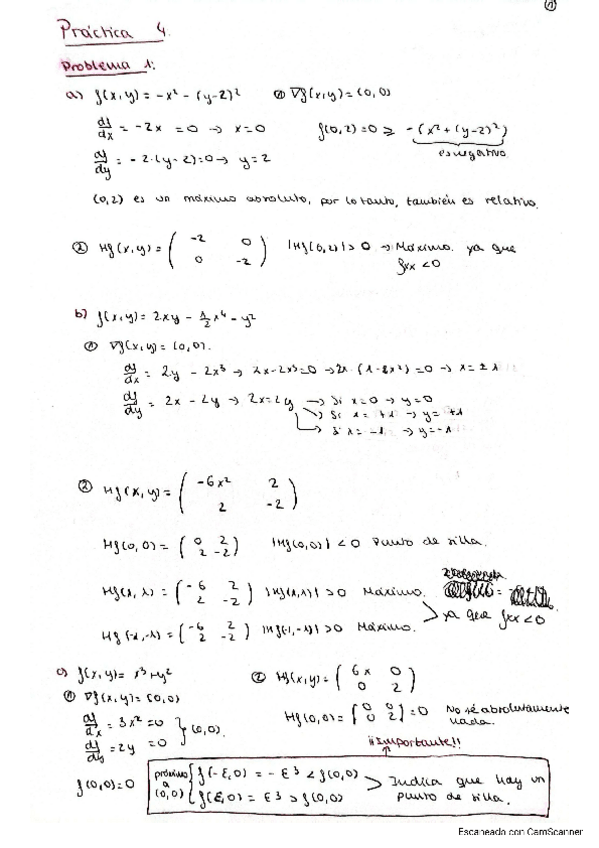 1
Práctica 4.
Problema 1:
a) f(x,y) = -x² - (y-2)² ① ∇f(x,y) = (0,0)
df/dx = -2x = 0 → x=0 f(0,2)=0 ≥ -(x²+(y-2)²)
es negativo
df/dy = -2·(y-2)=0 → y=2
(0,2) es un máximo absoluto, por lo tanto, también es relativo.
② Hf(x,y) = ( -2 0 ; 0 -2 ) |Hf(0,2)| > 0 → Máximo. ya que
fxx < 0
b) f(x,y) = 2xy - 1/2 x⁴ - y²
① ∇f(x,y) = (0,0).
df/dx = 2y - 2x³ → 2x-2x³=0 → 2x·(1- x²) = 0 → x = ±1
df/dy = 2x - 2y → 2x=2y → Si x=0 → y=0
→ Si x = +1 → y = +1
→ Si x = -1 → y = -1
② Hf(x,y) = ( -6x² 2 ; 2 -2 )
Hf(0,0) = ( 0 2 ; 2 -2 ) |Hf(0,0)| < 0 Punto de silla.
Hf(1,1) = ( -6 2 ; 2 -2 ) |Hf(1,1)| > 0 Máximo.
ya que fxx < 0
Hf(-1,-1) = ( -6 2 ; 2 -2 ) |Hf(-1,-1)| > 0 Máximo.
c) f(x,y) = x³+y² ② Hf(x,y) = ( 6x 0 ; 0 2 )
① ∇f(x,y) = (0,0)
df/dx = 3x² = 0 } (0,0).
df/dy = 2y = 0
Hf(0,0) = | 0 0 ; 0 2 | = 0 No sé absolutamente
nada.
¡¡Importante!!
f(0,0)=0
próximo a (0,0) { f(-ε,0) = -ε³ < f(0,0)
f(ε,0) = ε³ > f(0,0)
> Indica que hay un
punto de silla.
Escaneado con CamScanner